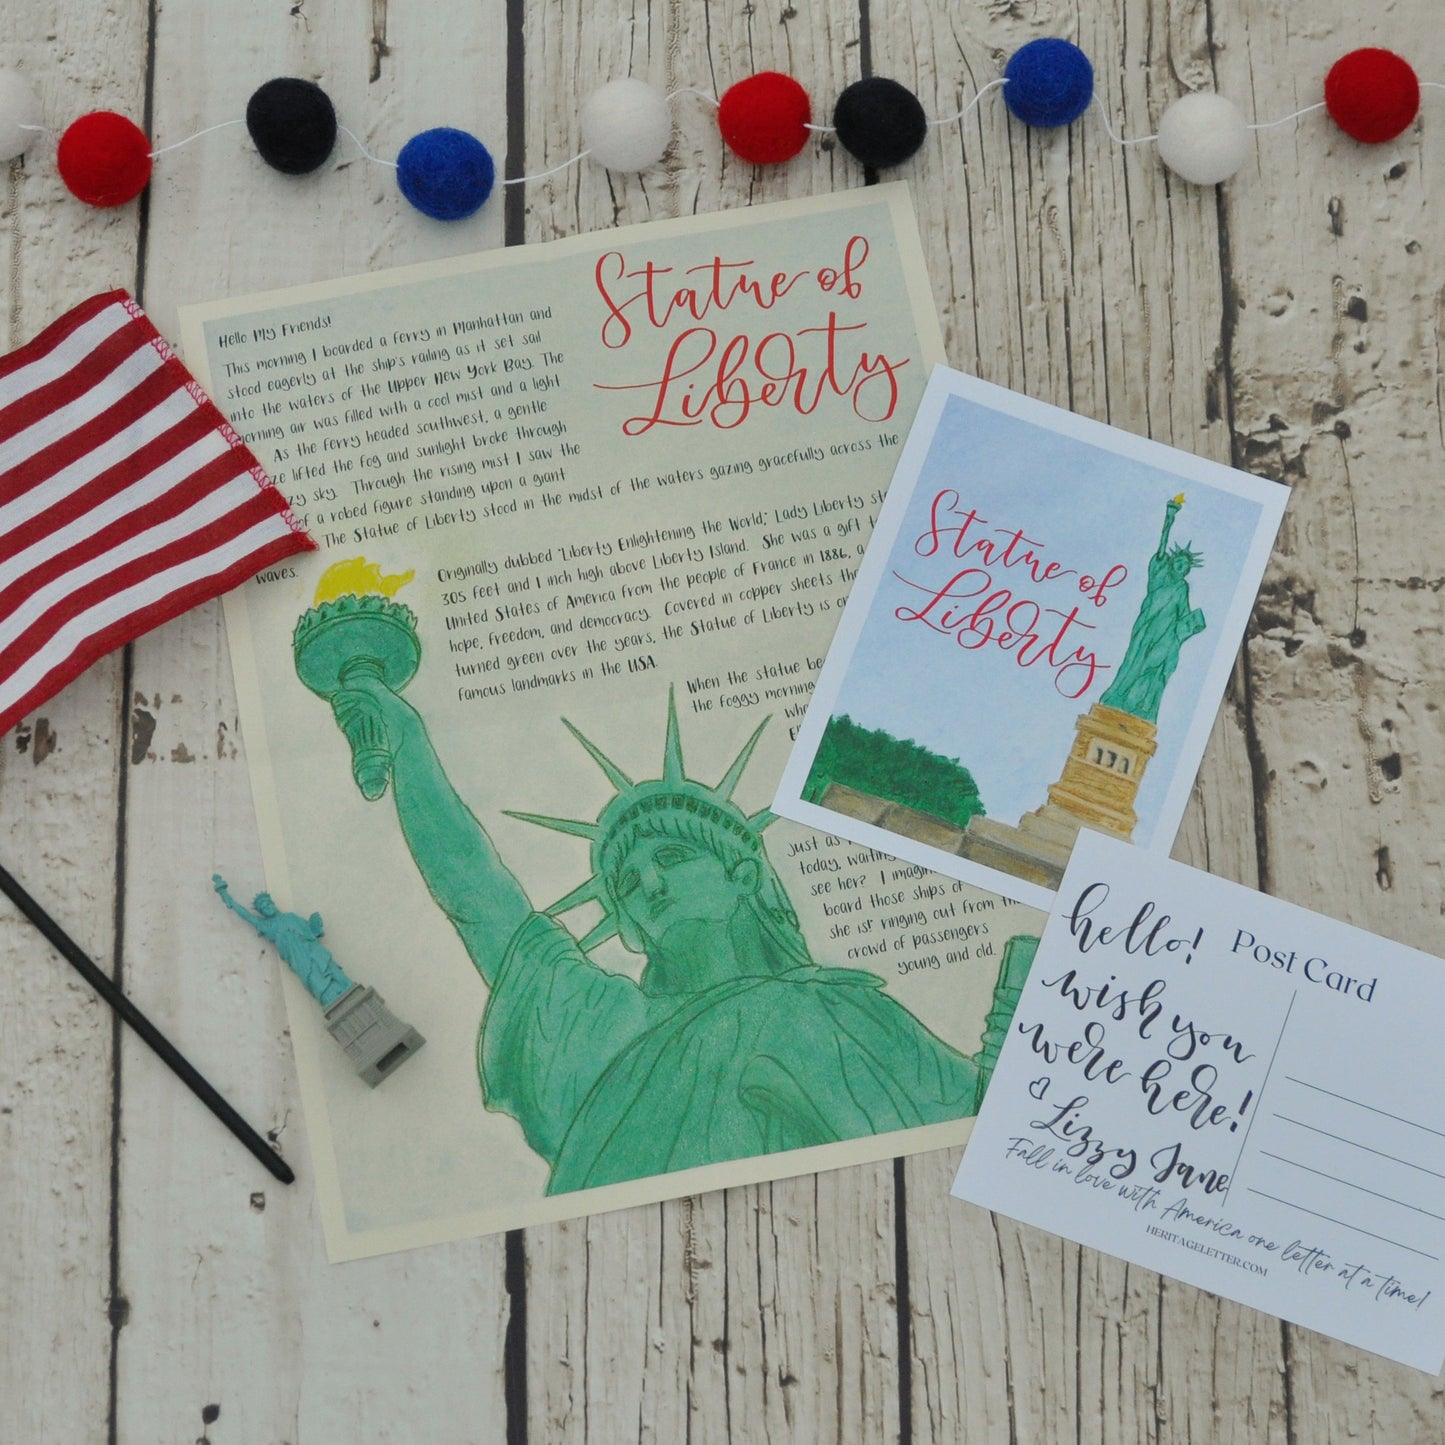 Statue of
Liberty
Hello My Friends!
This morning I boarded a ferry in Manhattan and
stood eagerly at the ship's railing as it set sail
into the waters of the Upper New York Bay. The
morning air was filled with a cool mist and a light
As the ferry headed southwest, a gentle
lifted the fog and sunlight broke through
sky. Through the rising mist I saw the
of a robed figure standing upon a giant
The Statue of Liberty stood in the midst of the waters gazing gracefully across the
waves.
Originally dubbed "Liberty Enlightening the World," Lady Liberty
305 feet and 1 inch high above Liberty Island. She was a gift
United States of America from the people of France in 1886, a
hope, freedom, and democracy. Covered in copper sheets
turned green over the years, the Statue of Liberty is
famous landmarks in the USA.
When the statue
the foggy morning
just as
today, waiting
see her? I
board those ships of
she is!" ringing out from
crowd of passengers
young and old.
Statue of
Liberty
hello!
wish you
were here!
Lizzy Jane
Fall in love with America one letter at a time!
HERITAGELETTER.COM
Post Card